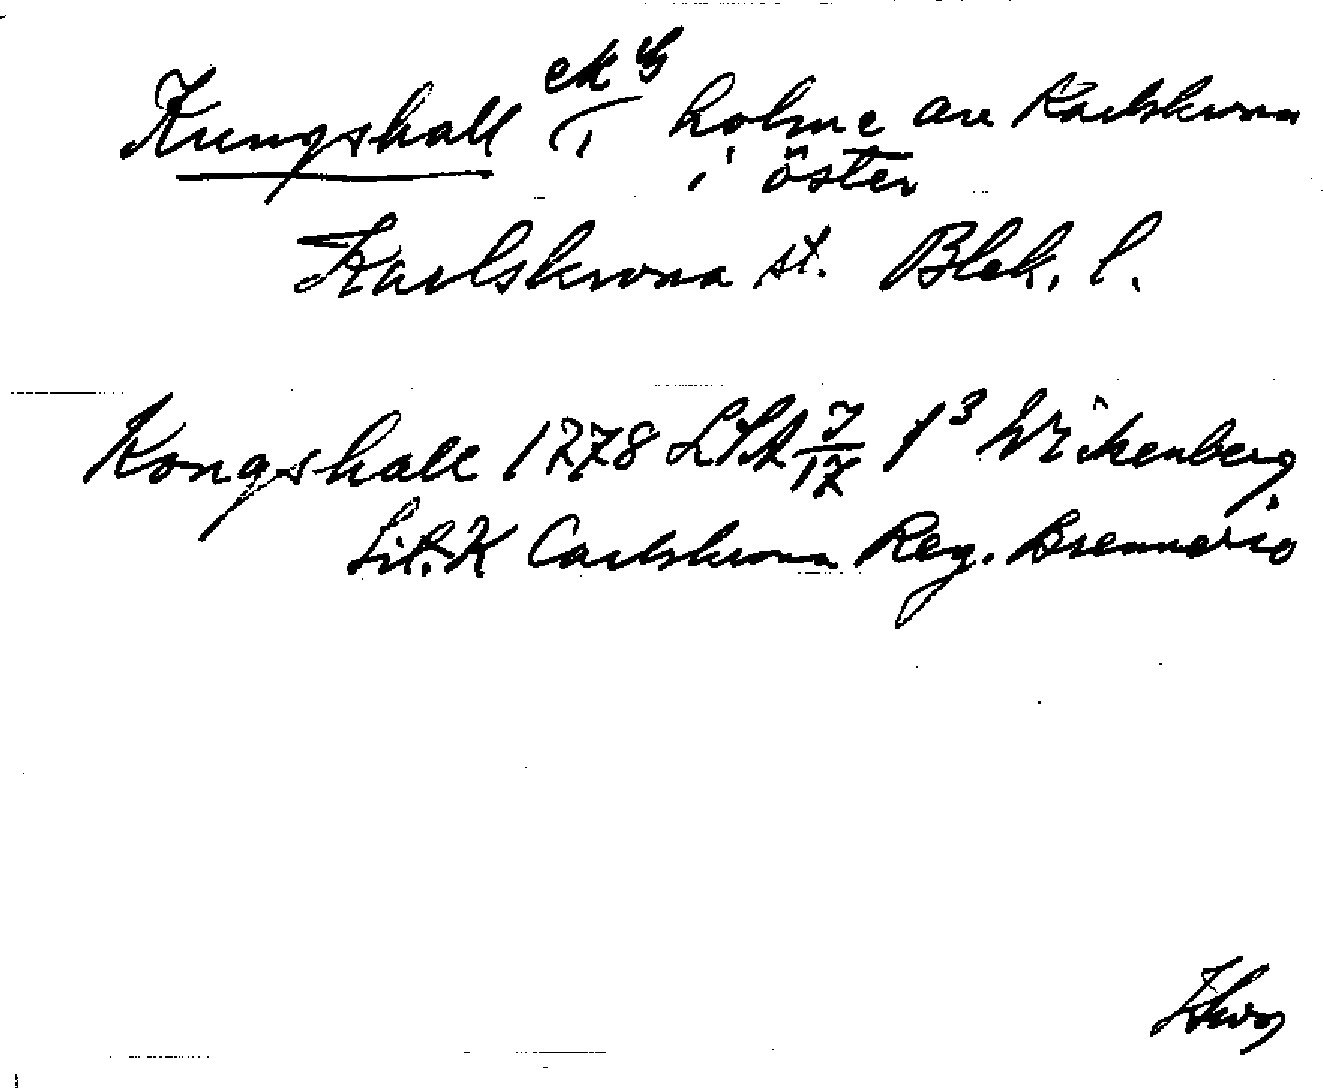 Kungshall ek G holme av Karlskrona
i öster
Karlskrona st. Blek. l.
Kongshall 1778 LSA J/17 f3 Wikenberg
Lit. K Carlskrona Reg. Brennerio